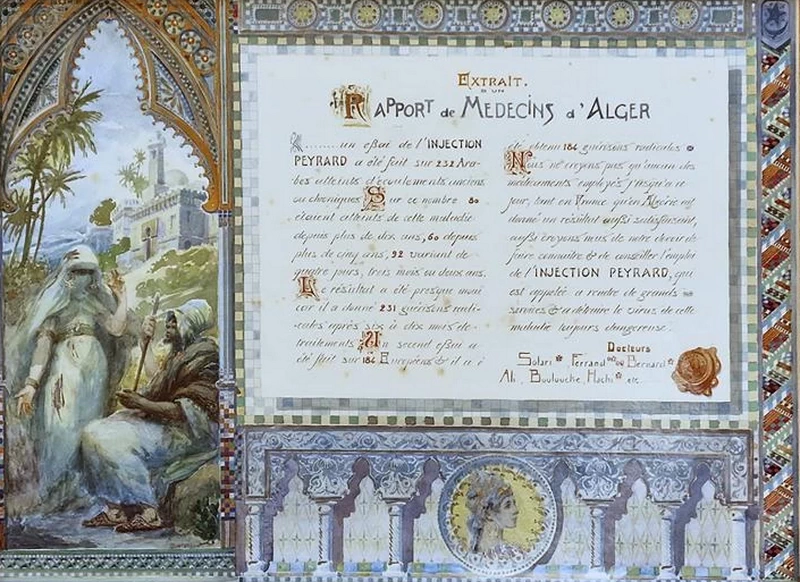 EXTRAIT.
D'UN
RAPPORT de MEDECINS d'ALGER
........un essai de l'INJECTION
PEYRARD a été fait sur 232 Ara-
bes atteints d'écoulements anciens
ou chroniques Sur ce nombre 80
étaient atteints de cette maladie
depuis plus de dix ans, 60 depuis
plus de cinq ans, 92 variant de
quatre jours, trois mois ou deux ans.
Le résultat a été presque inouï
car il a donné 231 guérisons radi-
cales après six à dix mois de
traitements. Un second essai a
été fait sur 184 Européens & il a
été obtenu 184 guérisons radicales
Nous ne croyons pas qu'aucun des
médicaments employés jusqu'à ce
jour, tant en France qu'en Algérie ait
donné un résultat aussi satisfaisant,
aussi croyons nous de notre devoir de
faire connaître & de conseiller l'emploi
de l'INJECTION PEYRARD, qui
est appelée à rendre de grands
services & à détruire le virus de cette
maladie toujours dangereuse.
Docteurs
Solari, Ferrand, Bernard
Ali, Bouloüche, Hachi, etc